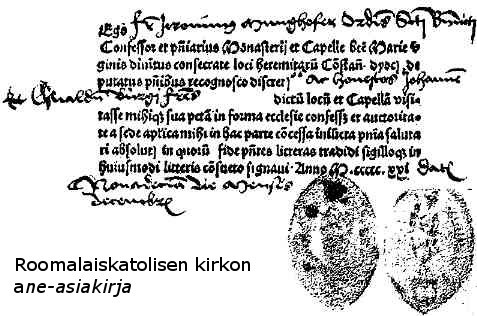 Ego fr Jeronimus Munghofer Ordis Scti Bndicti
Confessor et pñiarius Monasterij et Capelle btē Marie v
ginis divinitus consecrate loci heremitarū Cōstañ. dyoc. de
putatus pñibus recognosco discret ac honestos Johannē
et Oswaldū Burgi frēs dictū locū et Capellā visi
tasse mihiqʒ sua pctā in forma ecclesie confessis et auctorita
te a sede aplica mihi in hac parte cōcessa iniūcta pñia saluta
ri absolvi in quorū fide pñtes litteras tradidi sigilloqʒ in
huiusmodi litteris cōsueto signaui. Anno M.ccccc.xxi datē
die Mensis
decembris
Roomalaiskatolisen kirkon
ane-asiakirja